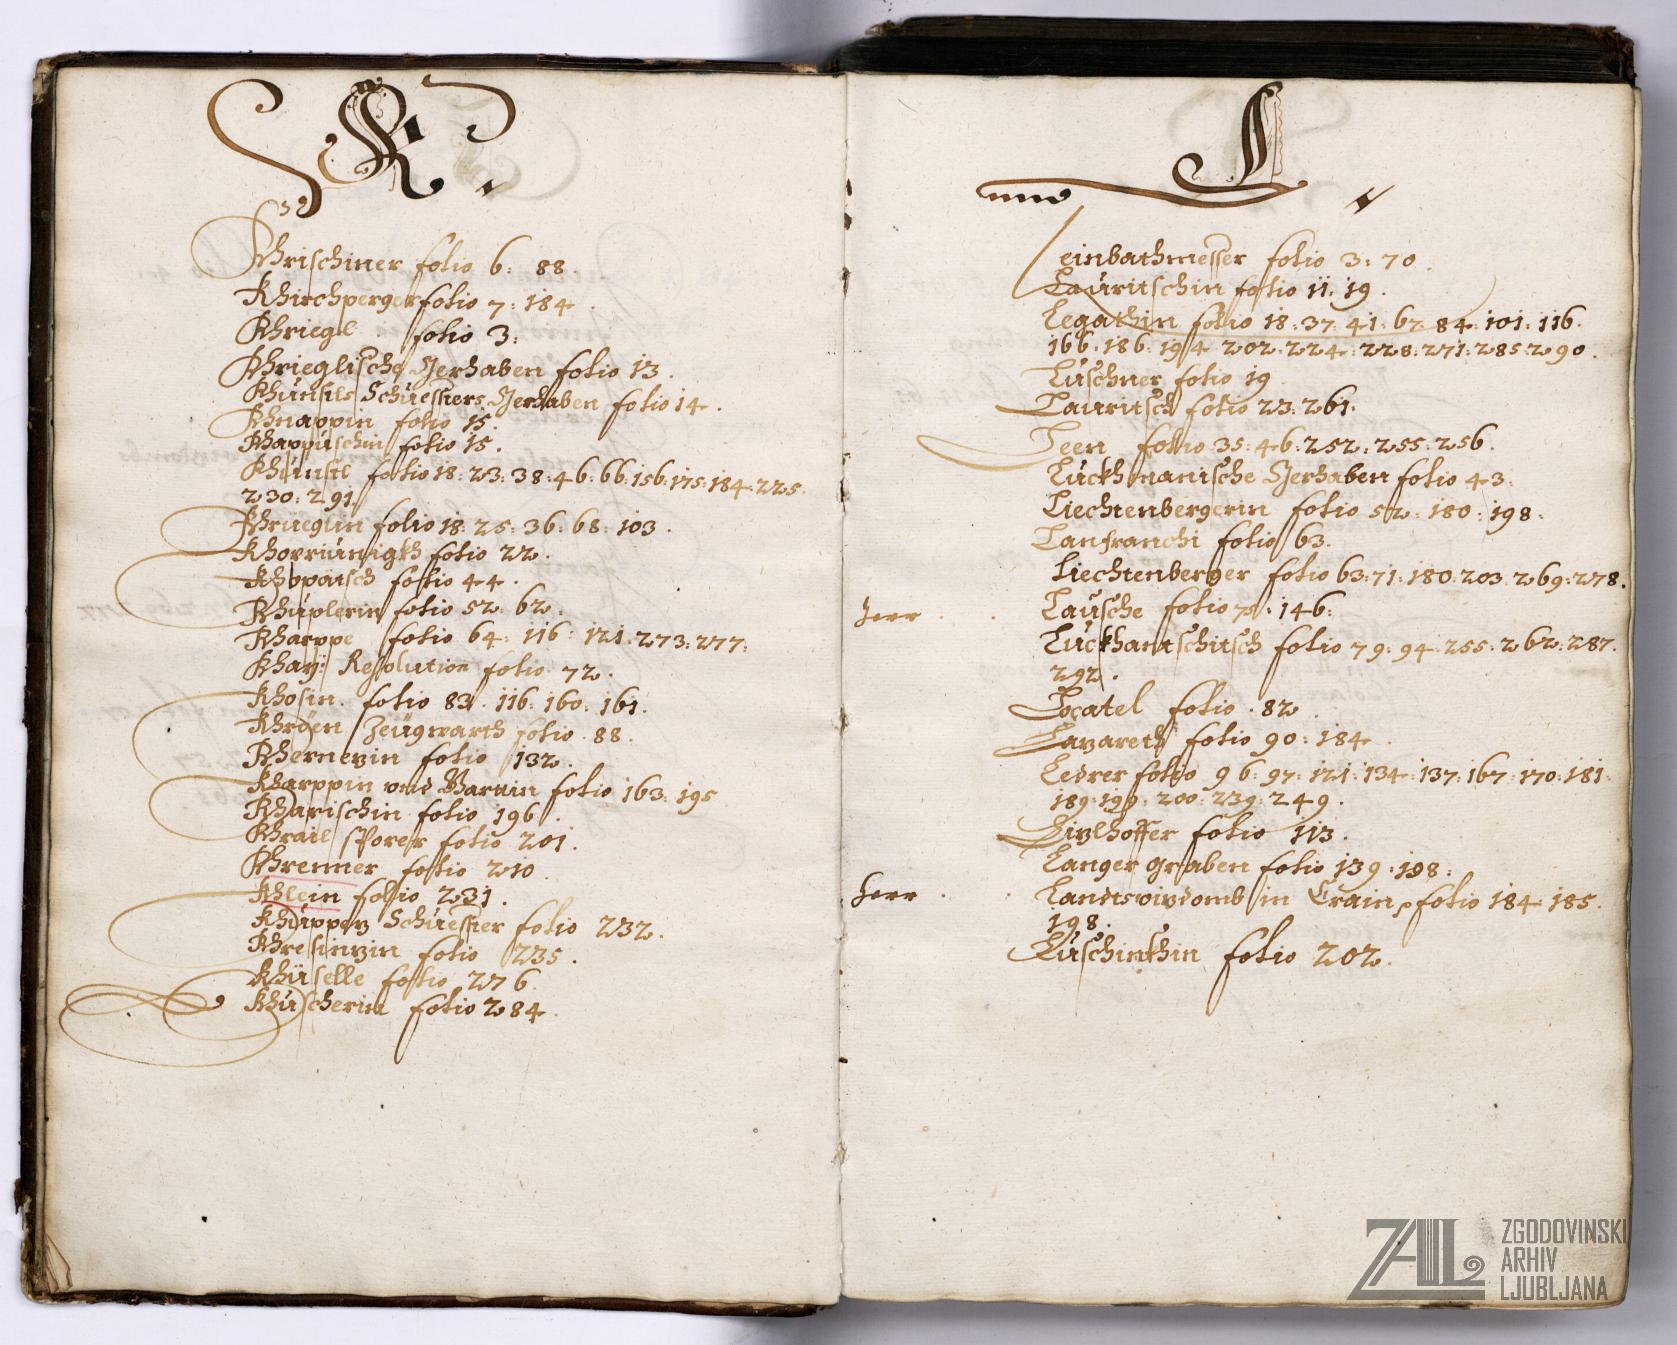 K
Khrischiner folio 6: 88
Khirchperger folio 7: 184.
Khriegl folio 3:
Khrieglische Jerhaben folio 13.
Khünstls Schüessters Jerhaben folio 14.
Khnappin folio 15.
Khappüschin folio 15.
Khünstl folio 18: 23: 38: 46: 66: 156: 175: 184: 225:
230: 291.
Khrüeglin folio 18: 25: 36: 68: 103.
folio 22.
Khopäisch folio 44.
Khüplerin folio 52: 62.
Kharppe folio 64: 116: 121: 273: 277:
Khay: Resolution folio 72.
Khosin. folio 83: 116: 160: 161.
Khröen Zeügwarth folio 88.
Khernezin folio 132.
Kharppin vnd folio 163: 195
Kharischin folio 196.
Khrail Sporer folio 201.
Khrenner folio 210
Khlein folio 231.
folio 232.
Khresinzin folio 235.
Khüselle folio 276.
Khüscherin folio 284.
L
Leinbathmesser folio 3: 70.
Lauritschin folio 11: 19.
Legathin folio 18: 37: 41: 62: 84: 101: 116.
166: 186: 194: 202: 224: 228: 271: 285: 290.
Lüschner folio 19
Lauritsch folio 23: 261.
Leen folio 35: 46: 252: 255: 256.
Lückhmanische Jerhaben folio 43:
Liechtenbergerin folio 52: 180: 198:
Lanfranchi folio 63.
Liechtenberger folio 63: 71: 180: 203: 269: 278.
herr Lausche folio 75: 146:
Lückhantschitsch folio 79: 94: 255: 262: 287.
292.
Locatel folio 82
Lazareth folio 90: 184.
Ledrer folio 96: 97: 121: 134: 137: 167: 170: 181:
189: 199: 200: 239: 249.
Lizlhoffer folio 113.
Langer graben folio 139: 198:
herr Landtsvizdomb in Crain folio 184: 185.
198.
Lüschinkhin folio 202.
ZAL ZGODOVINSKI
ARHIV
LJUBLJANA